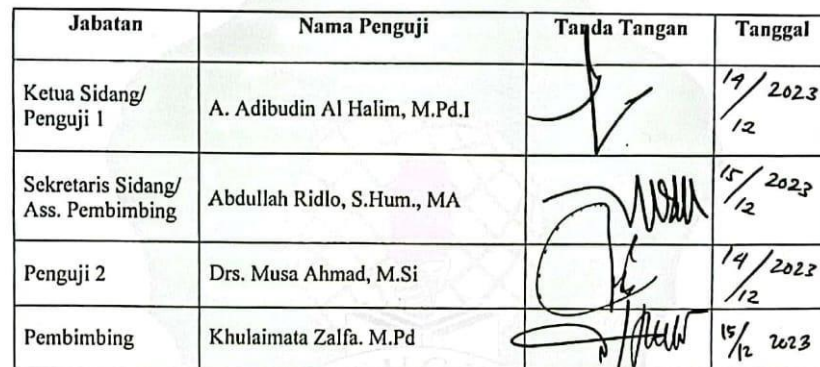 Jabatan Nama Penguji Tanda Tangan Tanggal
Ketua Sidang/
Penguji 1 A. Adibudin Al Halim, M.Pd.I 14/12 2023
Sekretaris Sidang/
Ass. Pembimbing Abdullah Ridlo, S.Hum., MA 15/12 2023
Penguji 2 Drs. Musa Ahmad, M.Si 14/12 2023
Pembimbing Khulaimata Zalfa. M.Pd 15/12 2023